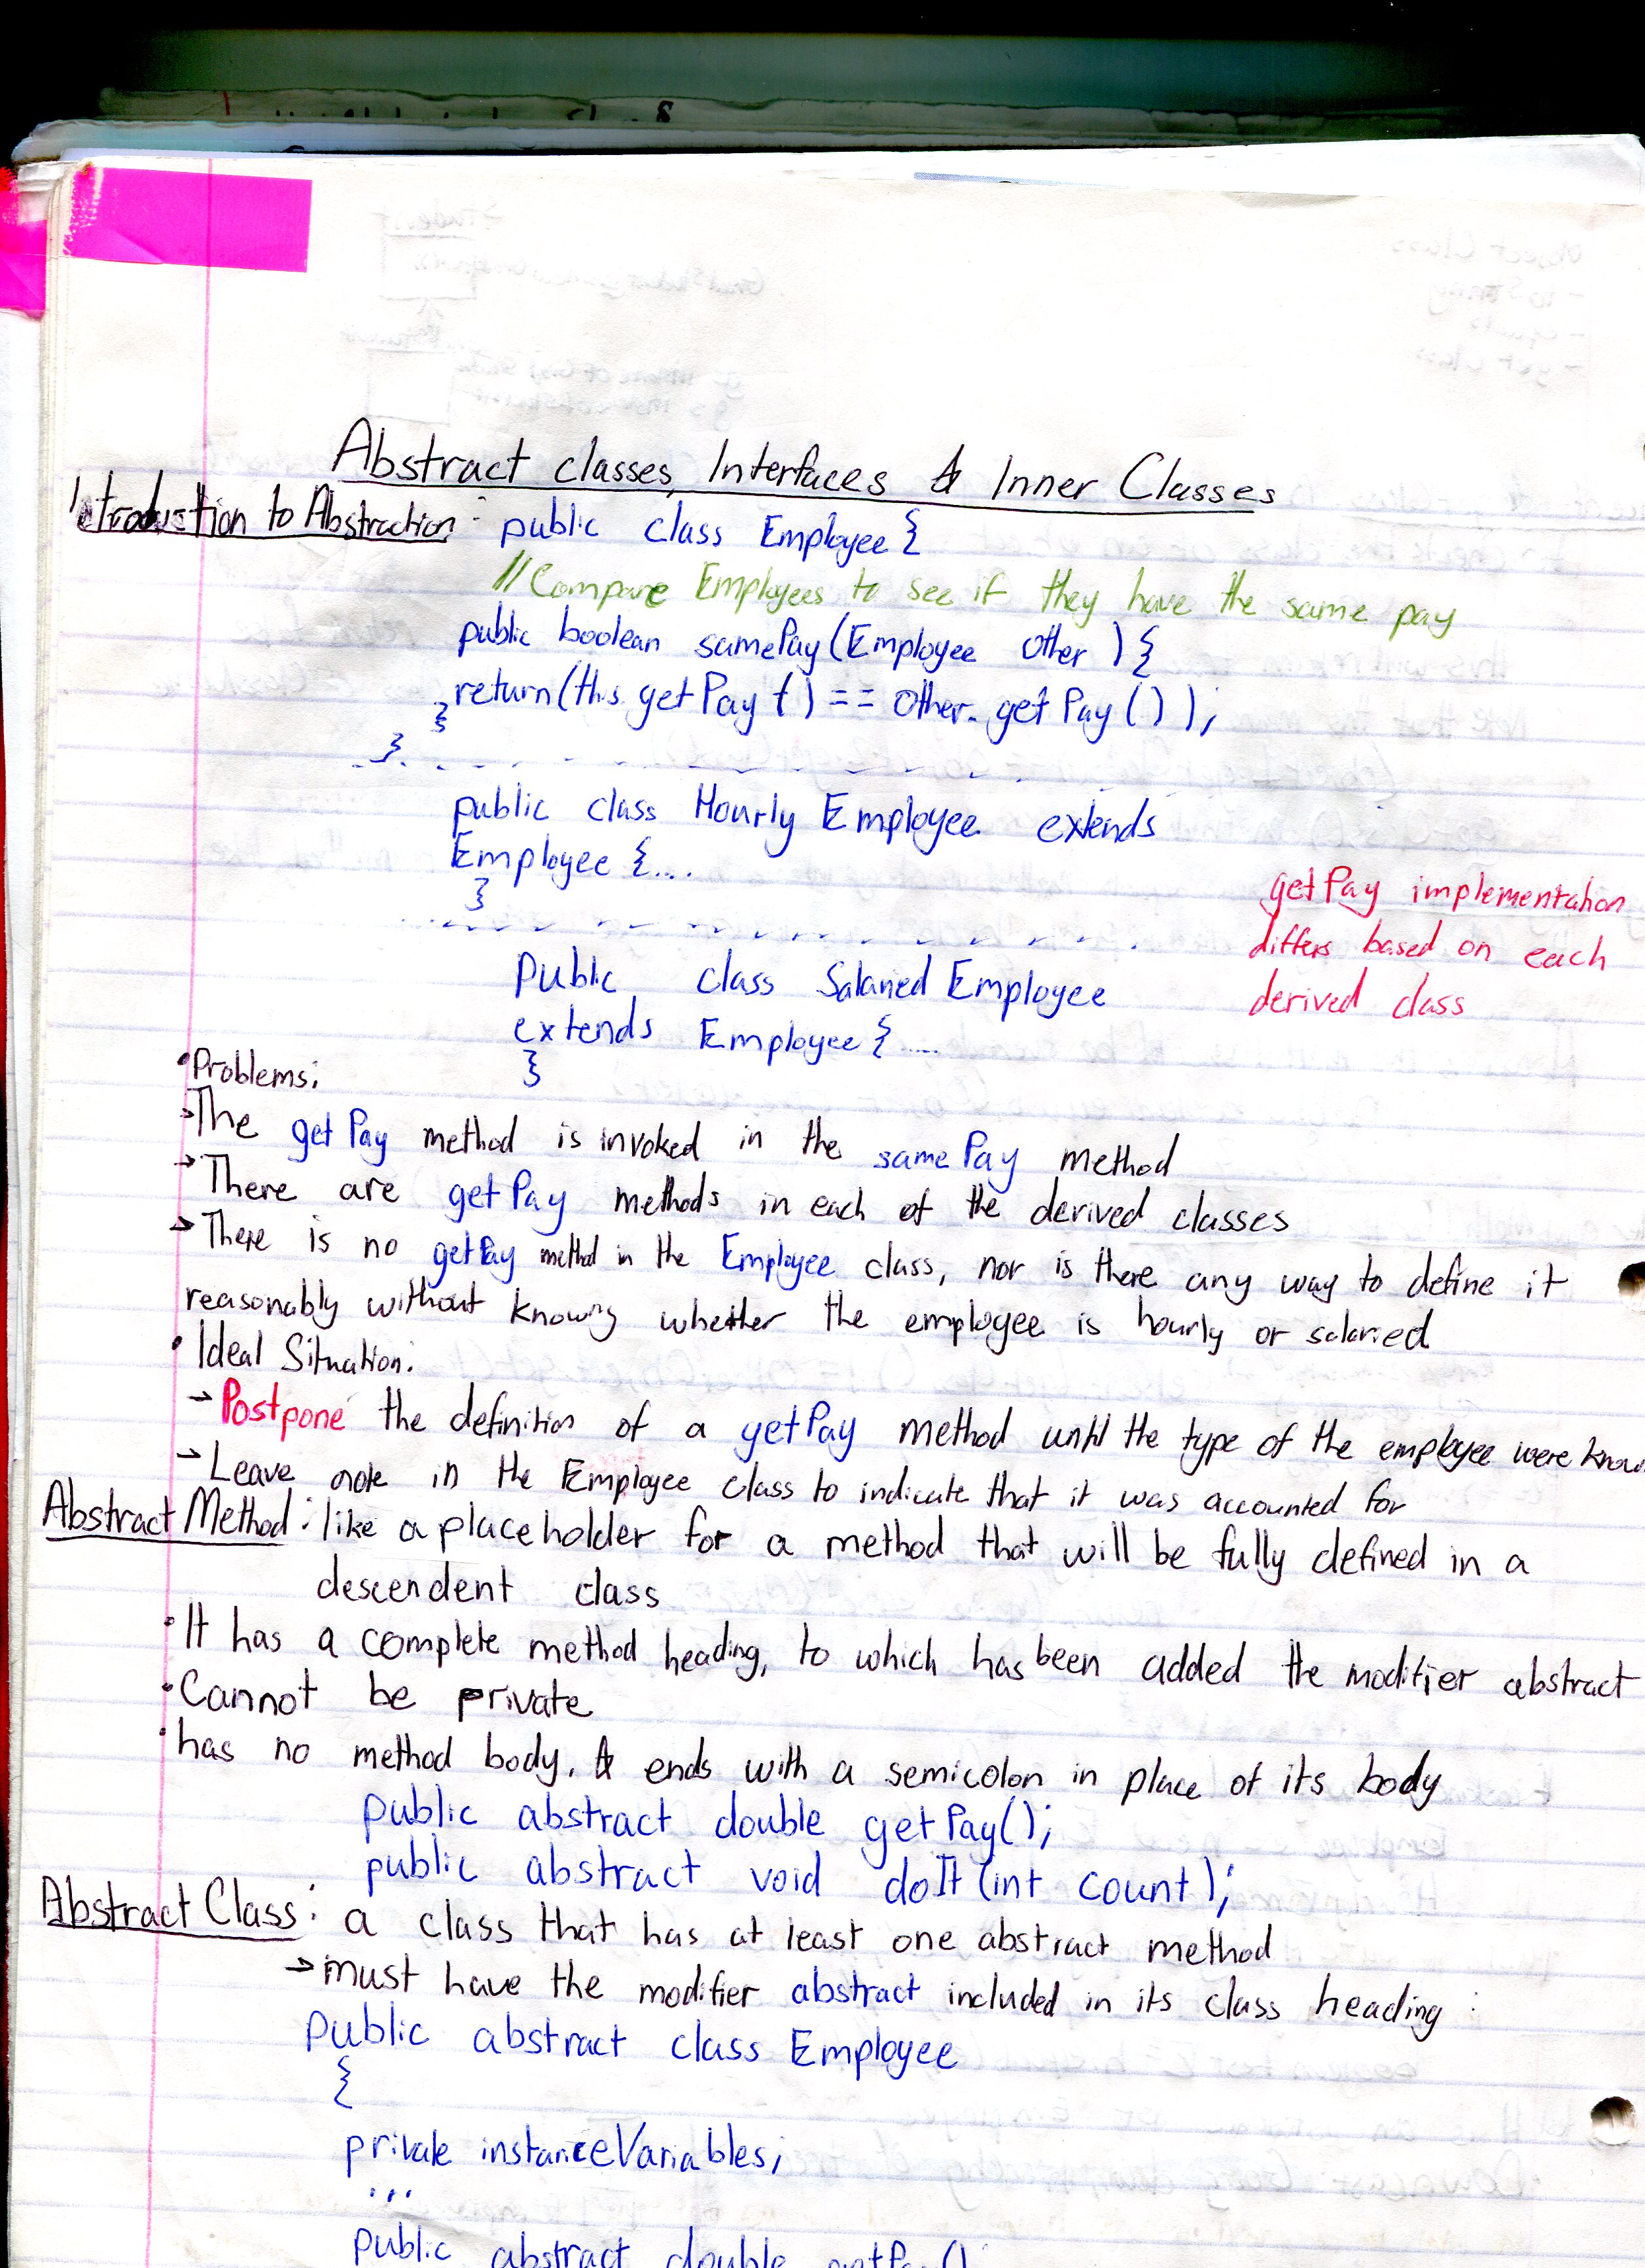 Abstract classes, Interfaces & Inner Classes
Introduction to Abstraction: public class Employee {
//Compare Employees to see if they have the same pay
public boolean samePay(Employee other) {
return(this.getPay() == other.getPay());
}
}
public class HourlyEmployee extends
Employee {...
}
getPay implementation
differs based on each
derived class
Public class SalariedEmployee
extends Employee { ....
}
• Problems:
→ The getPay method is invoked in the samePay method
→ There are getPay methods in each of the derived classes
→ There is no getPay method in the Employee class, nor is there any way to define it
reasonably without knowing whether the employee is hourly or salaried
• Ideal Situation:
→ Postpone the definition of a getPay method until the type of the employee were know
→ Leave note in the Employee class to indicate that it was accounted for
Abstract Method: like a placeholder for a method that will be fully defined in a
descendent class
• It has a complete method heading, to which has been added the modifier abstract
• Cannot be private
• has no method body, & ends with a semicolon in place of its body
public abstract double getPay();
public abstract void doIt(int count);
Abstract Class: a class that has at least one abstract method
→ must have the modifier abstract included in its class heading:
Public abstract class Employee
{
private instanceVariables;
...
public abstract double getPay();